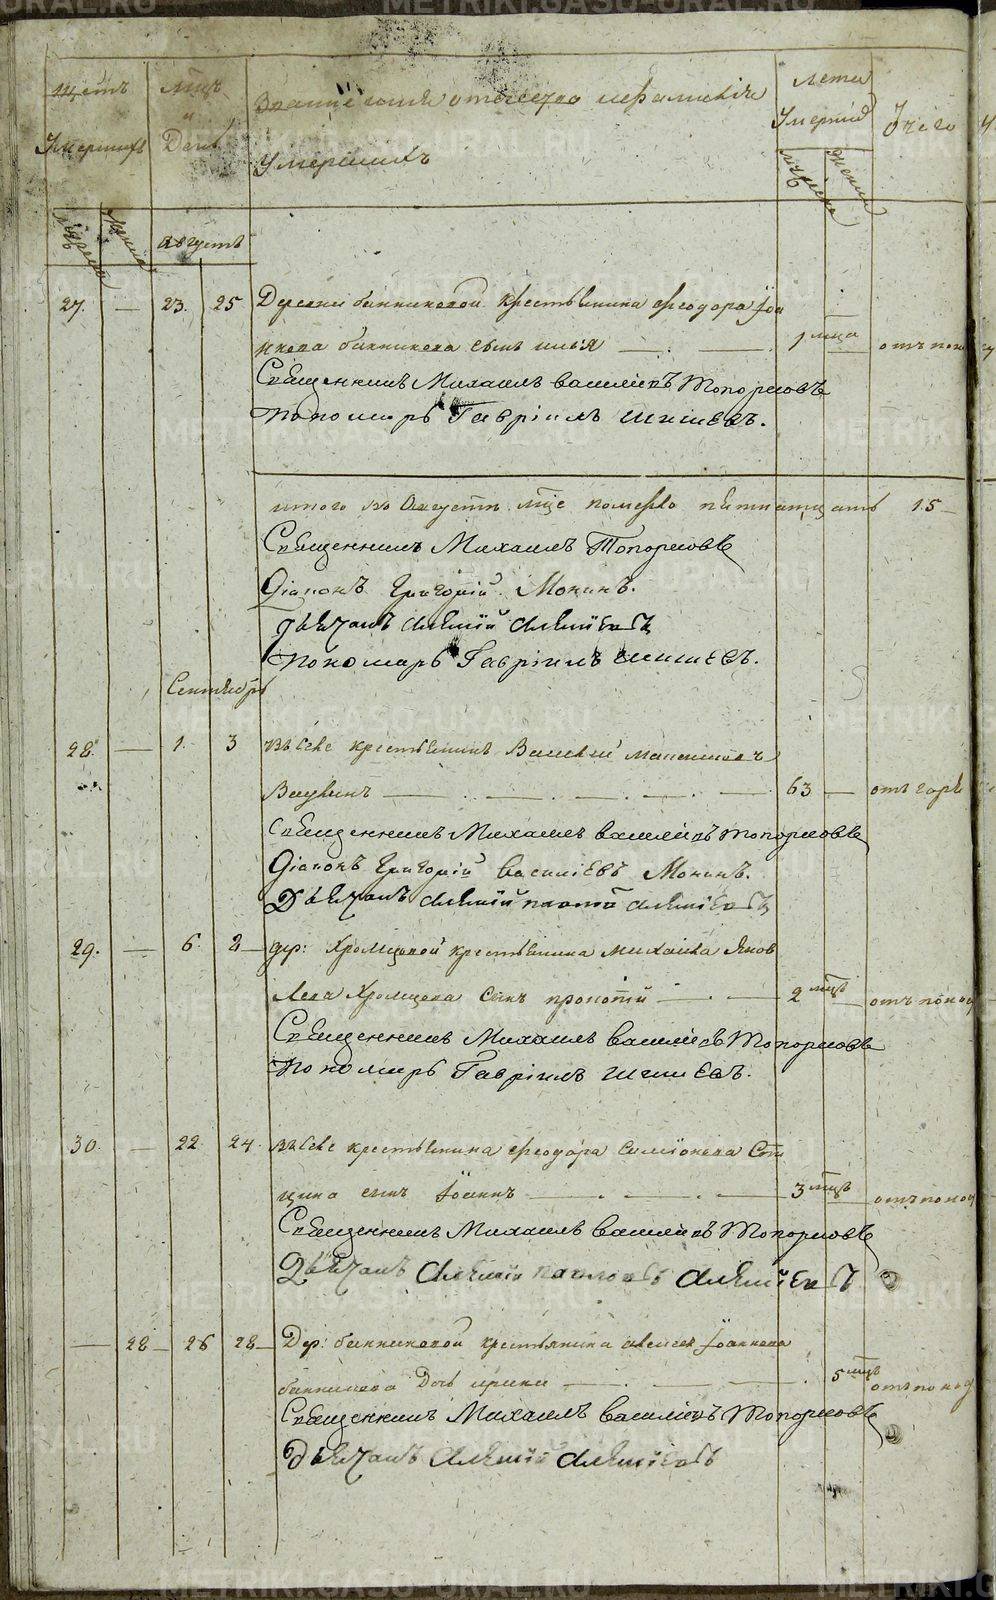 METRIKI.GASU-URAL.RU
щетъ умершихъ
мцъ и день
Звание имя отечество и фамилiя умершихъ
Лета умершихъ
Мужеска
Женска
Августъ
27. — 23. 25 Деревни банниковой крестьянина феодора Iоан
нова банникова сынъ илья — 1 мца отъ поно
Священникъ Михаилъ василiевъ Топорковъ
Пономарь Гаврiилъ Шишевъ.
итого въ Августе мце померло пятнатцать 15
Священникъ Михаилъ Топорковъ
Дiаконъ Григорiй Мокинъ.
Дьячокъ Алексiй Алексiевъ
Пономарь Гаврiилъ Шишевъ.
Сентябрь
28. — 1. 3 въ селе крестьянинъ Василiй Максимовъ
— 63 — отъ горя
Священникъ Михаилъ василiевъ Топорковъ
Дiаконъ Григорiй Василiевъ Мокинъ.
Дьячокъ Алексiй Алексiевъ
29. — 6. 8 дер: Хромцовой крестьянина михаила Яков
лева Хромцова сынъ прокопiй — 2 мцъ отъ поно
Священникъ Михаилъ василiевъ Топорковъ
Пономарь Гаврiилъ Шишевъ.
30. — 22. 24. въ селе крестьянина феодора Симiонова
сынъ Iоаннъ — 3 мцъ отъ поно
Священникъ Михаилъ василiевъ Топорковъ
Дьячокъ Алексiй павловъ Алексiевъ
— 28 26 28 Дер: банниковой крестьянина алексея Iоаннова
банникова Дочь ирина — 5 мцъ отъ поно
Священникъ Михаилъ Василiевъ Топорковъ
Дьячокъ Алексiй Алексiевъ
METRIKI.GASU-URAL.RU